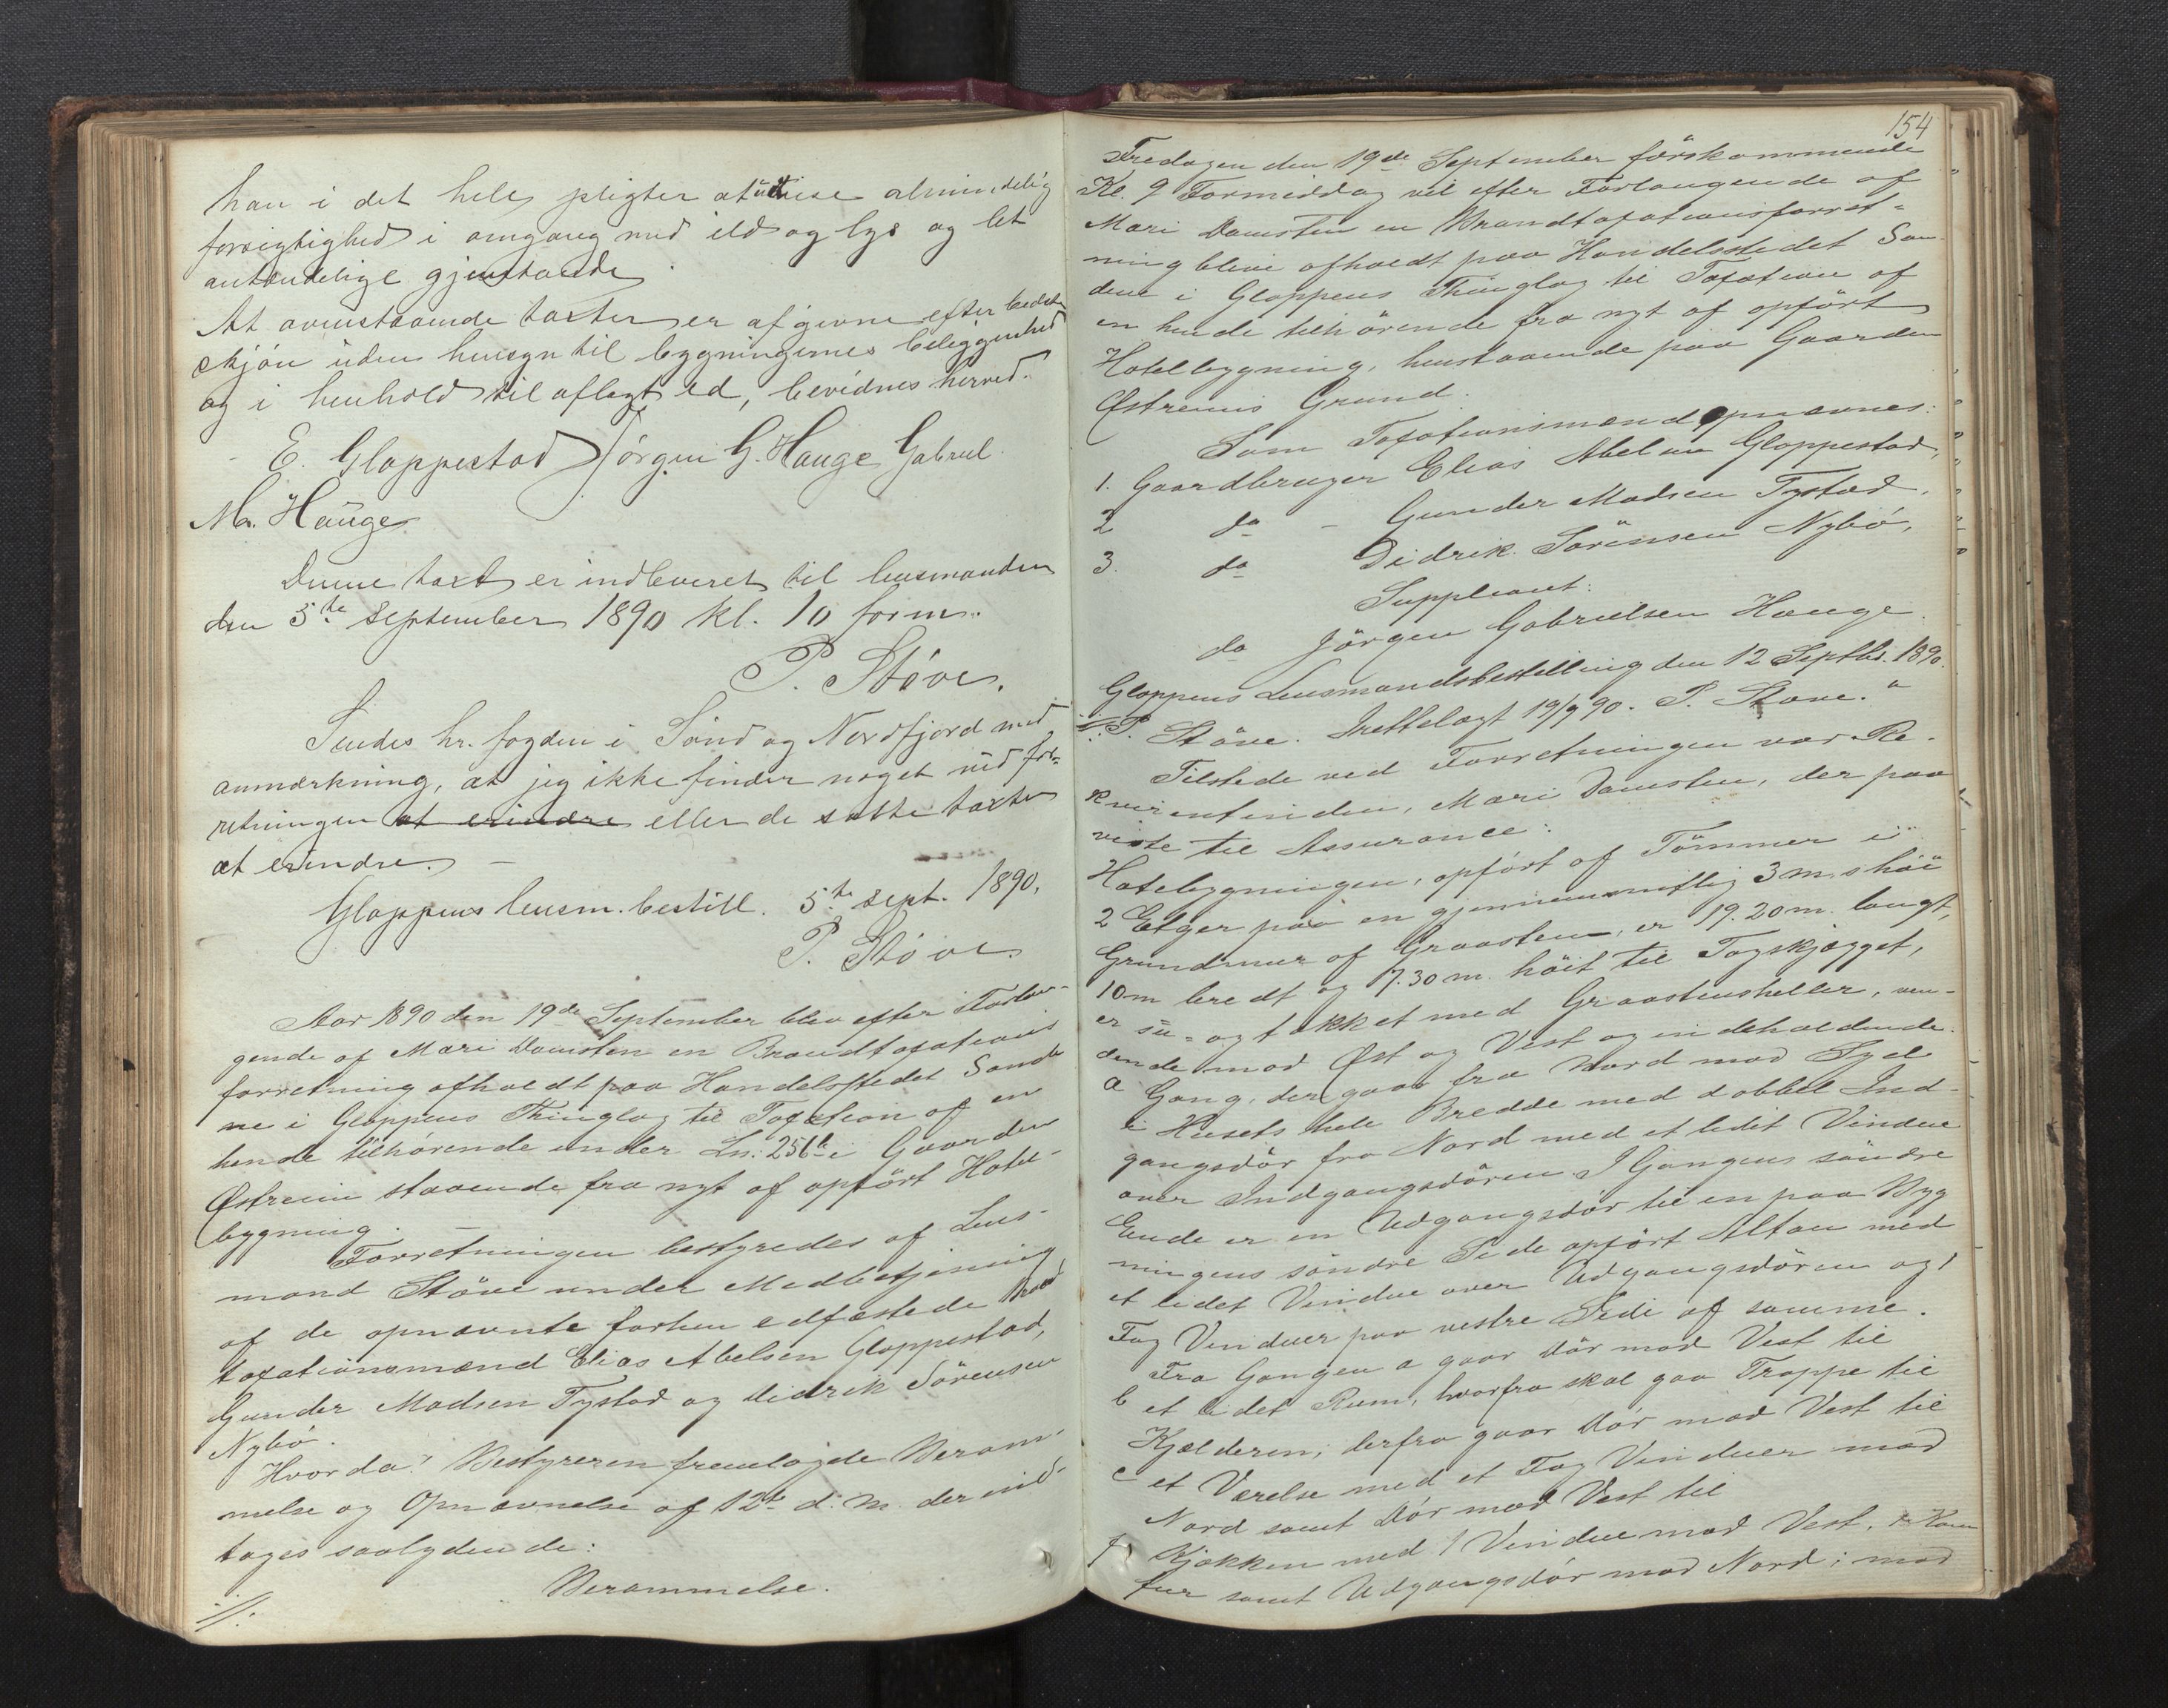 han i det hele pligter at udvise almindelig
forsigtighed i omgang med ild og lys og let
antændelige gjenstande.
At ovenstaaende taxter er afgivne efter bedste
skjøn uden hensyn til bygningernes beliggenhed
og i henhold til aflagt ed, bevidnes herved.
E. Gloppestad Jörgen G. Hauge Gabriel
M. Hauge
Denne taxt er indleveret til lensmanden
den 5te september 1890 kl. 10 form.
P. Støve.
Sendes hr. fogden i Sönd og Nordfjord med
anmærkning, at jeg ikke finder noget ved for-
retningen at erindre eller de satte taxter
at erindre. —
Gloppens lensm. bestill. 5te sept. 1890.
P. Støve.
Aar 1890 den 19de September blev efter Forlan-
gende af Mari Damsten en Brandtaxations
forretning afholdt paa Handelsstedet Sande
ne i Gloppens Thinglag til Taxation af en
hende tilhörende under Ln: 256 i Gaarden
Østreim staaende fra nyt af opfört Hotel-
bygning. —
Forretningen bestyredes af Lens-
mand Støve under Medbetjening
af de opnævnte forhen edfæstede
taxationsmænd Elias Abelsen Gloppestad,
Gunder Madsen Tystad og Didrik Sörensen
Nybö.
Hvorda! Bestyreren fremlagde Beram-
melse og Opnævnelse af 12te d. M. der ind-
tages saalydende:
Berammelse.
./.
154
Fredagen den 19de September förskommende
Kl. 9 Formiddag vil efter Forlangende af
Mari Damsten en Brandtaxationsforret-
ning blive afholdt paa Handelsstedet San-
dene i Gloppens Thinglag til Taxation af
en hende tilhörende fra nyt af opfört
Hotelbygning, henstaaende paa Gaarden
Østreims Grund.
Som Taxationsmænd opnævnes:
1. Gaardbruger Elias Abelsen Gloppestad,
2 do - Gunder Madsen Tystad,
3. do Didrik Sörensen Nybö,
Suppleant:
do Jörgen Gabrielsen Hauge.
Gloppens Lensmandsbestilling den 12 Septbr. 1890.
P. Støve. Fremlagt 19/9 90. P. Støve."
Tilstede ved Forretningen var Re-
kvirentinden, Mari Damsten, der paa
viste til Assurance:
Hotelbygningen, opfört af Tömmer i
2 Etger paa en gjennemsnitlig 3 m. höi
Grundmur af Graasten, er 19.20 m. langt,
10 m bredt og 7.30 m. höit til Tagskjægget,
er su- og tækket med Graastensheller, ven-
dende mod Øst og Vest og indeholdende.
a Gang, der gaar fra Nord mod Syd
i Husets hele Bredde med dobbel Ind-
gangsdör fra Nord med et lidet Vindue
over Indgangsdören I Gangens söndre
Ende er en Udgangsdör til en paa Byg
ningens söndre Side opfört Altan med
et lidet Vindue over Udgangsdören og 1
Fag Vinduer paa vestre Side af samme.
Fra Gangen a gaar Dör mod Vest til
b et lidet Rum, hvorfra skal gaa Trappe til
Kjælderen; derfra gaar Dör mod Vest til
c et Værelse med et Fag Vinduer mod
Nord samt Dör mod Vest til
Kjökken med 1 Vindue mod Vest, Kom
fur samt Udgangsdör mod Nord; mod